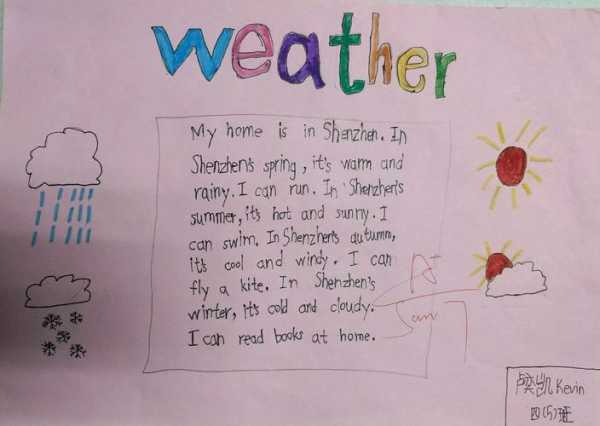 weather
My home is in Shenzhen. In
Shenzhen's spring, it's warm and
rainy. I can run. In Shenzhen's
summer, it's hot and sunny. I
can swim. In Shenzhen's autumn,
it's cool and windy. I can
fly a kite. In Shenzhen's
winter, it's cold and cloudy.
I can read books at home.
A+
卢奕凯 Kevin
四(5)班